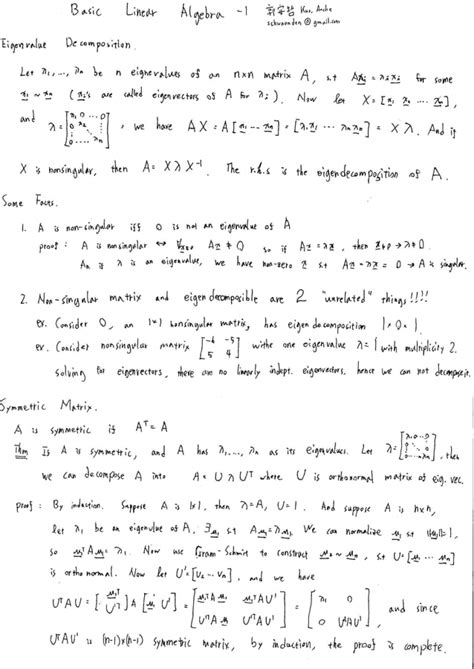 Basic Linear Algebra -1 Kuo, Arche
@gmail.com
Eigenvalue Decomposition.
Let λ1, ..., λn be n eigenvalues of an n×n matrix A, s.t Axi = λixi for some
x1 ~ xn (xi's are called eigenvectors of A for λi). Now let X = [x1 x2 ... xn],
and λ = [λ1 0 ... 0; 0 λ2 ⋮; 0 ... λn], we have AX = A[x1 ... xn] = [λ1x1 ... λnxn] = Xλ. And if
X is nonsingular, then A = XλX⁻¹. The r.h.s is the eigendecomposition of A.
Some Facts.
1. A is non-singular iff 0 is not an eigenvalue of A
proof: A is nonsingular ↔ ∀x≠0 Ax ≠ 0 so if Ax = λx, then x≠0 → λ≠0.
As λ is an eigenvalue, we have non-zero x s.t Ax = λx = 0 → A is singular.
2. Non-singular matrix and eigendecomposible are 2 "unrelated" things!!!!
ex. Consider 0, an 1×1 nonsingular matrix, has eigendecomposition 1×0×1.
ex. Consider nonsingular matrix [-4 -5; 5 4] withe one eigenvalue λ=1 with multiplicity 2.
solving for eigenvectors, there are no linearly indept. eigenvectors. hence we can not decompose it.
Symmetric Matrix.
A is symmetric if Aᵀ = A
Thm If A is symmetric, and A has λ1, ..., λn as its eigenvalues. Let λ = [λ1 0 ... 0; 0 ⋮; 0 ... λn], then
we can decompose A into A = UλUᵀ where U is orthonormal matrix of eig. vec.
proof: By induction. Suppose A is 1×1, then λ=A, U=1. And suppose A is n×n,
let λ1 be an eigenvalue of A, ∃u1 s.t Au1 = λu1. We can normalize u1 s.t ‖u1‖=1,
so u1ᵀAu1 = λ1. Now use Gram-Schmit to construct u2 ~ un, s.t U = [u1 ... un]
is orthonormal. Now let U' = [u2 ... un], and we have
UᵀAU = [u1ᵀ; U'ᵀ] A [u1 U'] = [u1ᵀAu1 u1ᵀAU'; U'ᵀAu1 U'ᵀAU'] = [λ1 0; 0 U'ᵀAU'], and since
U'ᵀAU' is (n-1)×(n-1) symmetric matrix, by induction, the proof is complete.